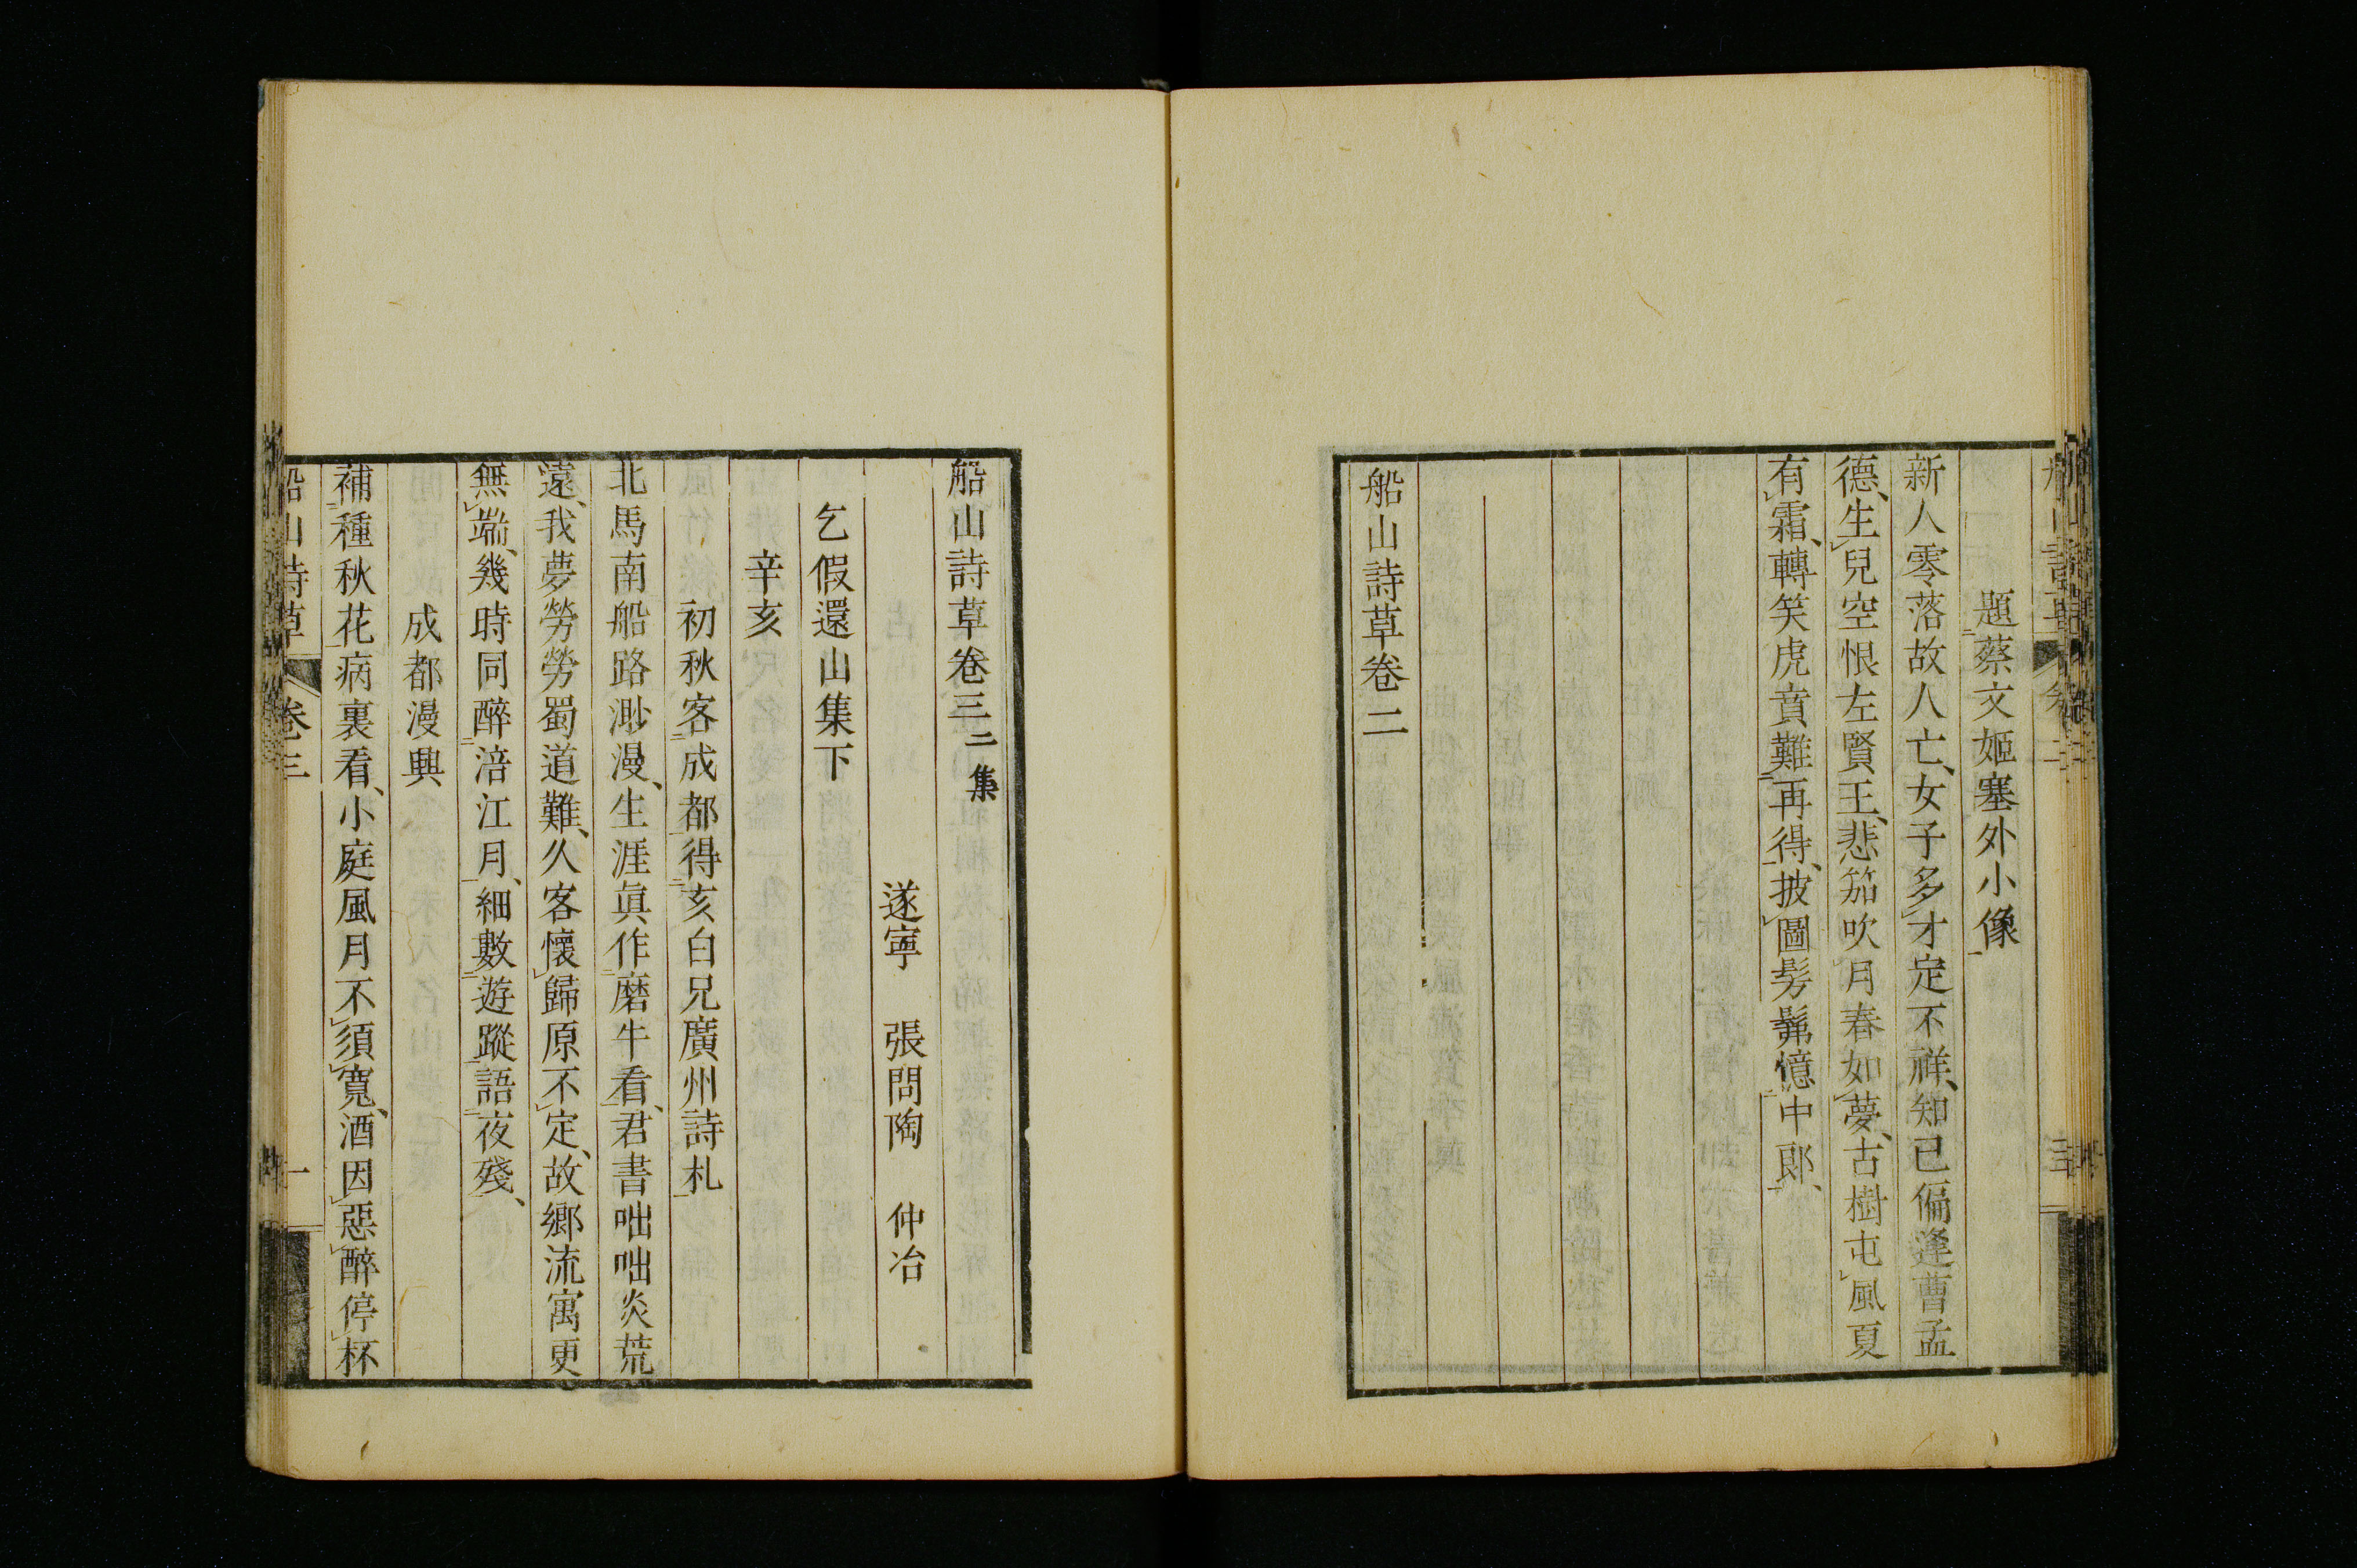 題蔡文姬塞外小像
新人零落故人亡、女子多才定不祥、知已偏逢曹孟
德、生兒空恨左賢王、悲笳吹月春如夢、古樹屯風夏
有霜、轉笑虎賁難再得、披圖髣髴憶中郎、
船山詩草卷二
船山詩草卷三 二集
遂寧 張問陶 仲冶
乞假還山集下
辛亥
初秋客成都得亥白兄廣州詩札
北馬南船路渺漫、生涯眞作磨牛看、君書咄咄炎荒
遠、我夢勞勞蜀道難、久客懷歸原不定、故鄉流寓更
無端、幾時同醉涪江月、細數遊蹤語夜殘、
成都漫興
補種秋花病裏看、小庭風月不須寬、酒因惡醉停杯
船山詩草 卷三 一